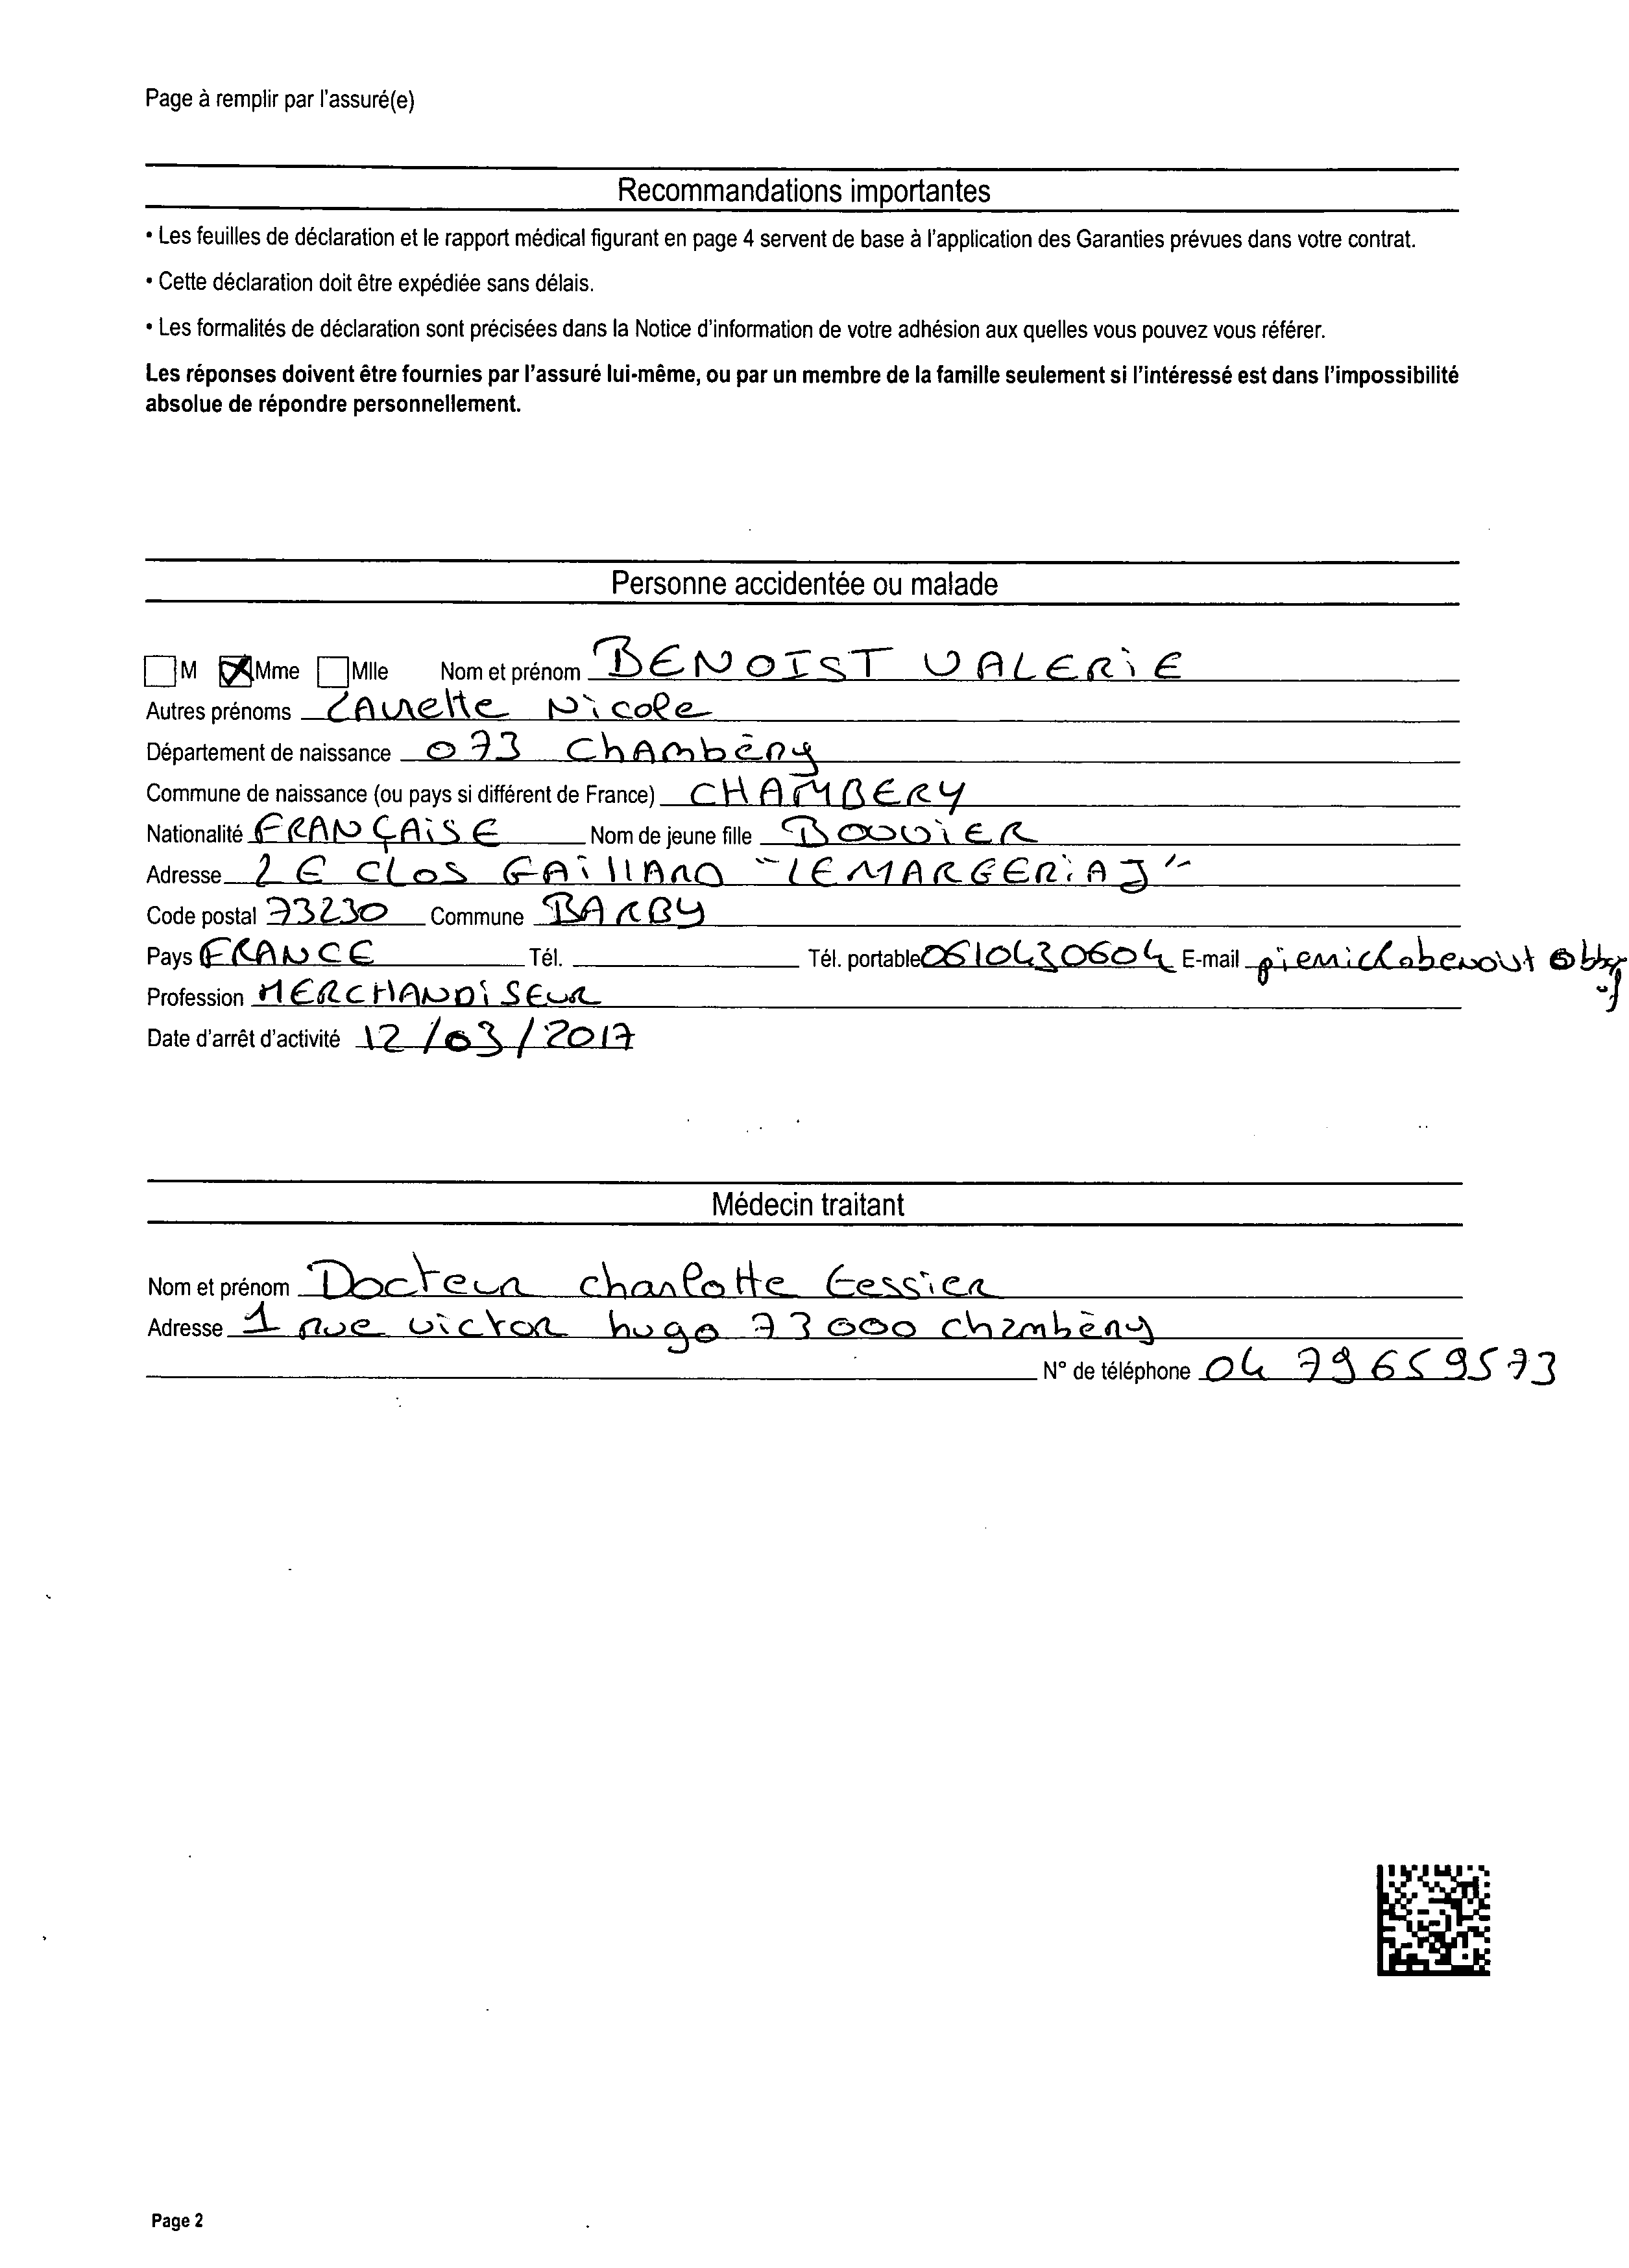 Page à remplir par l'assuré(e)
Recommandations importantes
• Les feuilles de déclaration et le rapport médical figurant en page 4 servent de base à l'application des Garanties prévues dans votre contrat.
• Cette déclaration doit être expédiée sans délais.
• Les formalités de déclaration sont précisées dans la Notice d'information de votre adhésion aux quelles vous pouvez vous référer.
Les réponses doivent être fournies par l'assuré lui-même, ou par un membre de la famille seulement si l'intéressé est dans l'impossibilité
absolue de répondre personnellement.
Personne accidentée ou malade
M Mme Mlle Nom et prénom BENOIST VALERIE
Autres prénoms Laurette Nicole
Département de naissance 073 Chambéry
Commune de naissance (ou pays si différent de France) CHAMBERY
Nationalité FRANÇAISE Nom de jeune fille BOUVIER
Adresse 2 E CLOS GAILLARD "LE MARGERIAJ"
Code postal 73230 Commune BARBY
Pays FRANCE Tél. Tél. portable 0610430604 E-mail
Profession MERCHANDISEUR
Date d'arrêt d'activité 12/03/2017
Médecin traitant
Nom et prénom Docteur charlotte tessier
Adresse 1 rue victor hugo 73000 chambéry
N° de téléphone 04 79659573
Page 2